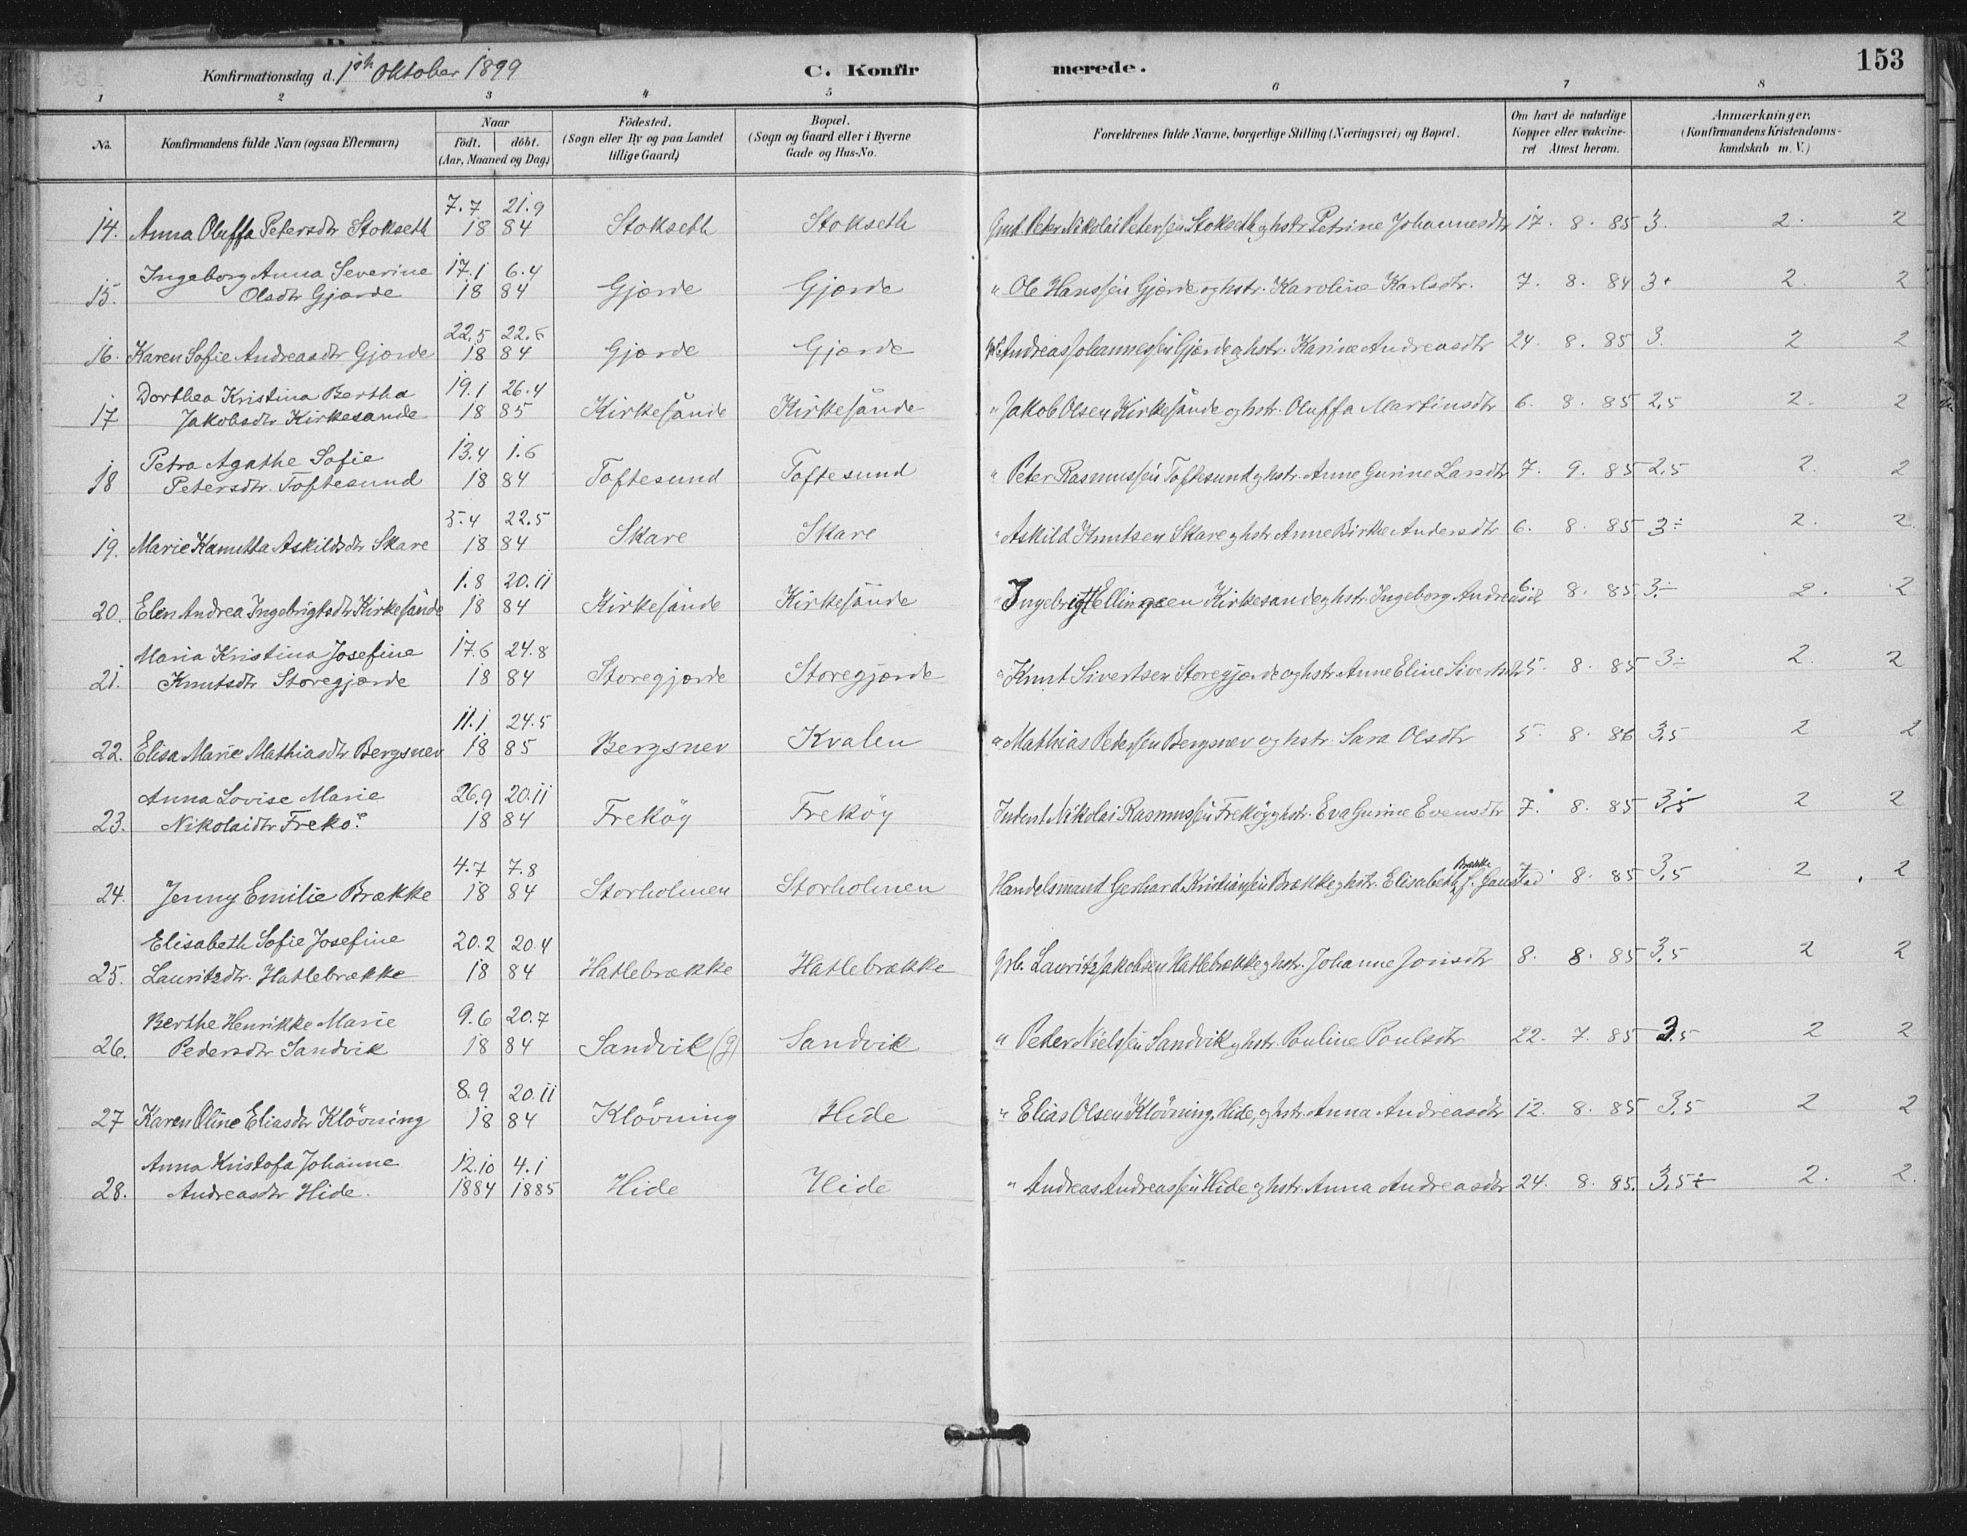 153
Konfirmationsdag d. 1ste Oktober 1899 C. Konfirmerede.
1 2 3 4 5 6 7 8
No. Konfirmandens fulde Navn (ogsaa Efternavn) Naar födt. döbt. (Aar, Maaned og Dag) Födested. (Sogn eller By og paa Landet tillige Gaard) Bopæl. (Sogn og Gaard eller i Byerne Gade og Hus-No. Forældrenes fulde Navne, borgerlige Stilling (Næringsvei) og Bopæl. Om havt de naturlige Kopper eller vakcineret Attest herom. Anmærkninger. (Konfirmandens Kristendomskundskab m. V.)
7.7 21.9
14. Anna Oluffa Petersdtr Stokseth 18 84 Stokseth Stokseth Gmd. Peter Nikolai Petersen Stokseth og hstr Petrine Johannesdtr 17. 8. 85 3. 2. 2
Ingeborg Anna Severine 17.1 6.4
15. Olsdtr Gjærde 18 84 Gjærde Gjærde " Ole Hanssen Gjærde og hstr. Karoline Karlsdtr. 7. 8. 84 3+ 2. 2
22.5 22.6
16. Karen Sofie Andreasdtr Gjærde 18 84 Gjærde Gjærde Andreas Johannessen Gjærde og hstr. Karine Andreasdtr 24. 8. 85 3. 2 2
Dorthea Kristina Bertha 19.1 26.4
17 Jakobsdtr Kirkesande 18 85 Kirkesånde Kirkesånde " Jakob Olsen Kirkesånde og hstr. Oluffa Martinsdtr 6. 8. 85 2,5 2. 2
Petra Agathe Sofie 13.4 1.6
18 Petersdtr. Toftesund 18 84 Toftesund Toftesund " Peter Rasmussen Toftesund og hstr. Anne Gurine Larsdtr 7. 9. 85 2,5 2. 2
5.4 22.5
19. Marie Kanutta Askildsdtr Skare 18 84 Skare Skare " Askild Knutsen Skare og hstr Anne Birthe Andersdtr 6. 8. 85 3÷ 2. 2.
1.8 20.11
20. Elen Andrea Ingebrigtsdtr Kirkesånde 18 84 Kirkesånde Kirkesånde " Ingebrigt Ellingsen Kirkesande og hstr Ingeborg Andreasdtr 6. 8. 85 3÷ 2. 2
Maria Kristina Josefine 17.6 24.8
21. Knutsdtr Storegjærde 18 84 Storegjærde Storegjærde " Knut Sivertsen Storegjærde og hstr. Anne Eline Sivertsdtr 25. 8. 85 3÷ 2. 2
11.1 24.5
22. Elisa Marie Mathiasdtr Bergsnev 18 85 Bergsnev Kvalen " Mathias Petersen Bergsnev og hstr. Sara Olsdtr 5. 8. 86 3,5 2 2
Anna Lovise Marie 26.9 20.11
23. Nikolaidtr Frekö. 18 84 Frekøy Frekøy Inderst Nikolai Rasmussen Frekøy og hstr. Eva Gurine Evensdtr 7. 8. 85 3,5 2 2
4.7 7.8
24. Jenny Emilie Brække 18 84 Storholmen Storholmen Handelsmand Gerhard Kristiansen Brække og hstr. Elisabeth Brække f. Gaustad 7. 8. 85 3,5 2 2
Elisabeth Sofie Josefine 20.2 20.4
25. Lauritzdtr. Hatlebrække 18 84 Hatlebrække Hatlebrække Grb. Lauritz Jakobsen Hatlebrække og hstr. Johanne Jonsdtr 8. 8. 85 3,5 2 2
Berthe Henrikke Marie 9.6 20.7
26. Pedersdtr Sandvik 18 84 Sandvik (g) Sandvik " Peder Nielssen Sandvik og hstr. Pauline Poulsdtr 22. 7. 85 3,5 2 2
8.9 20.11
27 Karen Oline Eliasdtr Klövning 18 84 Klövning Hide " Elias Olsen Klövning, Hide, og hstr. Anna Andreasdtr 12. 8. 85 3,5 2 2
Anna Kristofa Johanne 12.10 4.1
28. Andreasdtr Hide. 1884 1885 Hide Hide " Andreas Andreassen Hide og hstr. Anna Andreasdtr 24. 8. 85. 3,5÷ 2. 2.